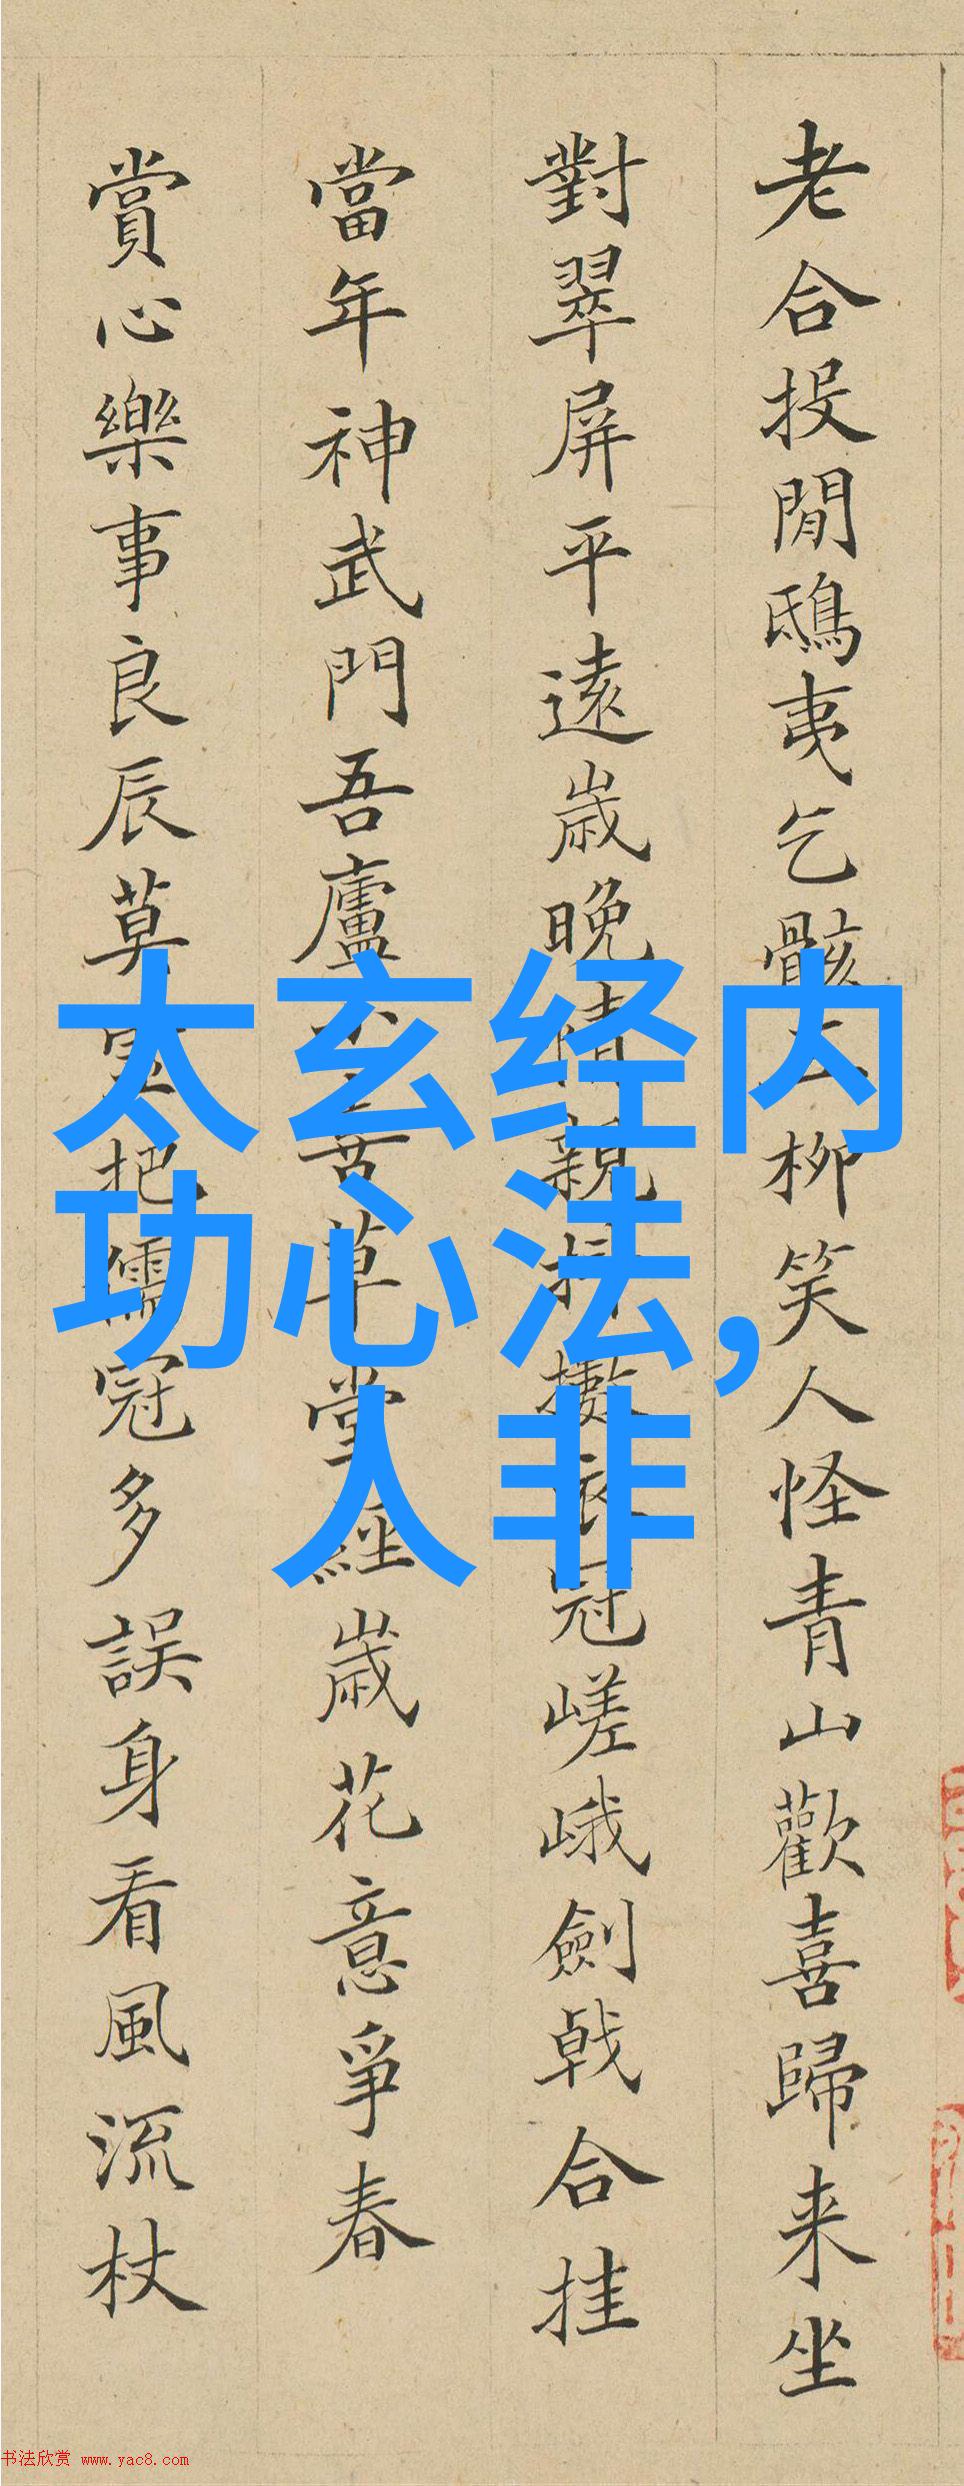 老合投閒鴟夷乞骸柳笑人怪青山歡喜歸来坐
對翠屏平遠歲晚情親衣冠嵯峨劍戟合挂
當年神武門吾廬苦草堂經歲花意爭春
賞心樂事良辰莫把儒冠多誤身看風流杖
太玄经内
功心法,
人非
书法欣赏 www.yac8.com